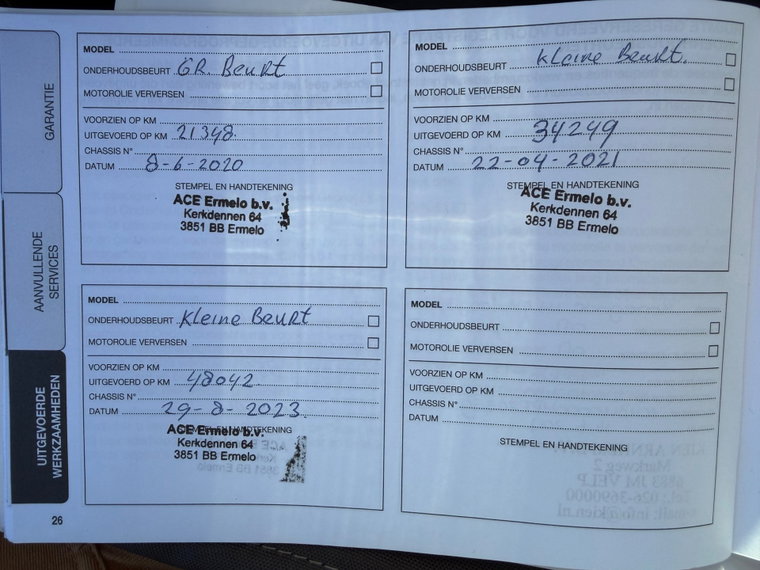 GARANTIE
AANVULLENDE
SERVICES
UITGEVOERDE
WERKZAAMHEDEN
MODEL
ONDERHOUDSBEURT GR. Beurt
MOTOROLIE VERVERSEN
VOORZIEN OP KM
UITGEVOERD OP KM 21348
CHASSIS N°
DATUM 8-6-2020
STEMPEL EN HANDTEKENING
ACE Ermelo b.v.
Kerkdennen 64
3851 BB Ermelo
MODEL
ONDERHOUDSBEURT Kleine Beurt.
MOTOROLIE VERVERSEN
VOORZIEN OP KM
UITGEVOERD OP KM 34249
CHASSIS N°
DATUM 22-04-2021
STEMPEL EN HANDTEKENING
ACE Ermelo b.v.
Kerkdennen 64
3851 BB Ermelo
MODEL
ONDERHOUDSBEURT Kleine Beurt
MOTOROLIE VERVERSEN
VOORZIEN OP KM
UITGEVOERD OP KM 48042
CHASSIS N°
DATUM 29-8-2023
STEMPEL EN HANDTEKENING
ACE Ermelo b.v.
Kerkdennen 64
3851 BB Ermelo
MODEL
ONDERHOUDSBEURT
MOTOROLIE VERVERSEN
VOORZIEN OP KM
UITGEVOERD OP KM
CHASSIS N°
DATUM
STEMPEL EN HANDTEKENING
26